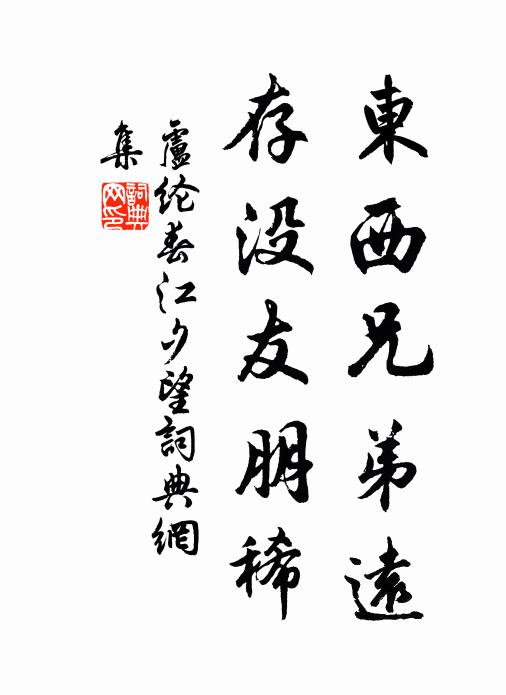 東西兄弟遠
存没友朋稀
盧纶春江夕望詞典網
集
詞典网印